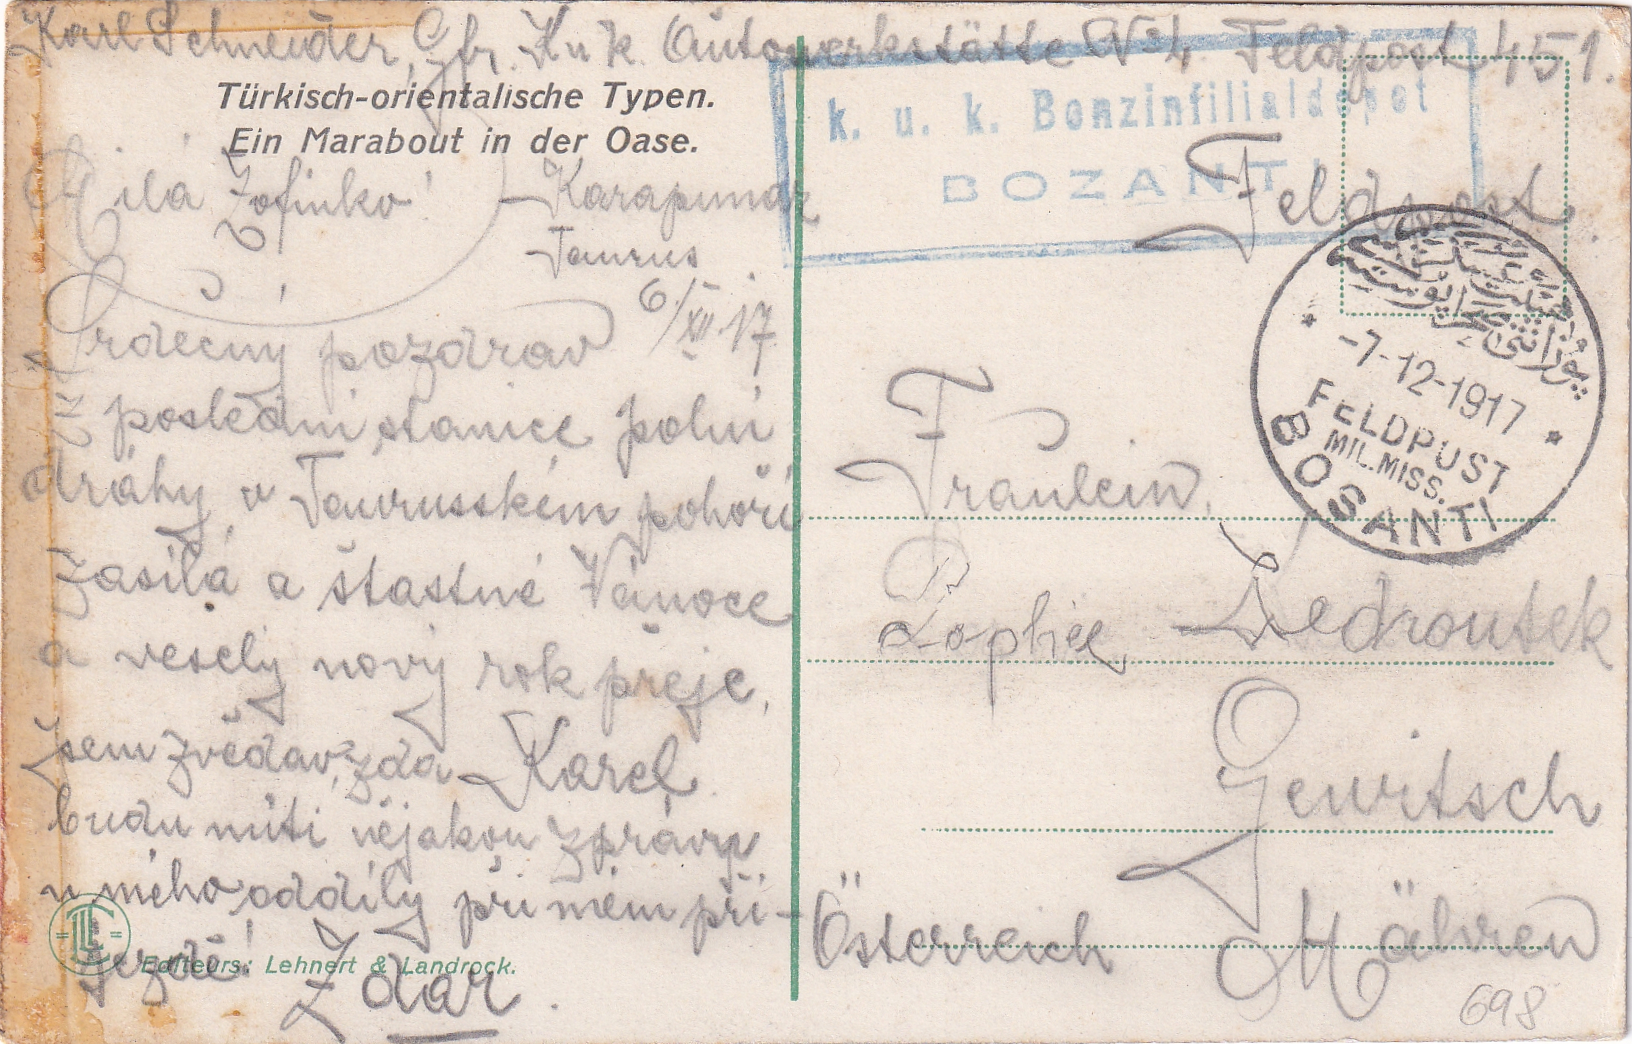 Karl Schneider, Gfr. K u k Autowerkstätte No 4 Feldpost 451.
Türkisch-orientalische Typen.
Ein Marabout in der Oase.
k. u. k. Benzinfilialdepot
BOZANTI
Feldpost.
Milá Žofinko!
Karapunar
Taurus
6./XII.17
Srdečný pozdrav
z poslední stanice polní
dráhy v Taurusském pohoří
zasílá a šťastné Vánoce
a veselý nový rok přeje,
Karel
Jsem zvědav, zda
budu míti nějakou zprávu
u mého oddílu při mém pří-
jezdě!
Zdar.
Editeurs: Lehnert & Landrock.
-7-12-1917
FELDPOST
MIL.MISS.
BOSANTI
Fräulein
Sophie
Gewitsch
Österreich Mähren
698